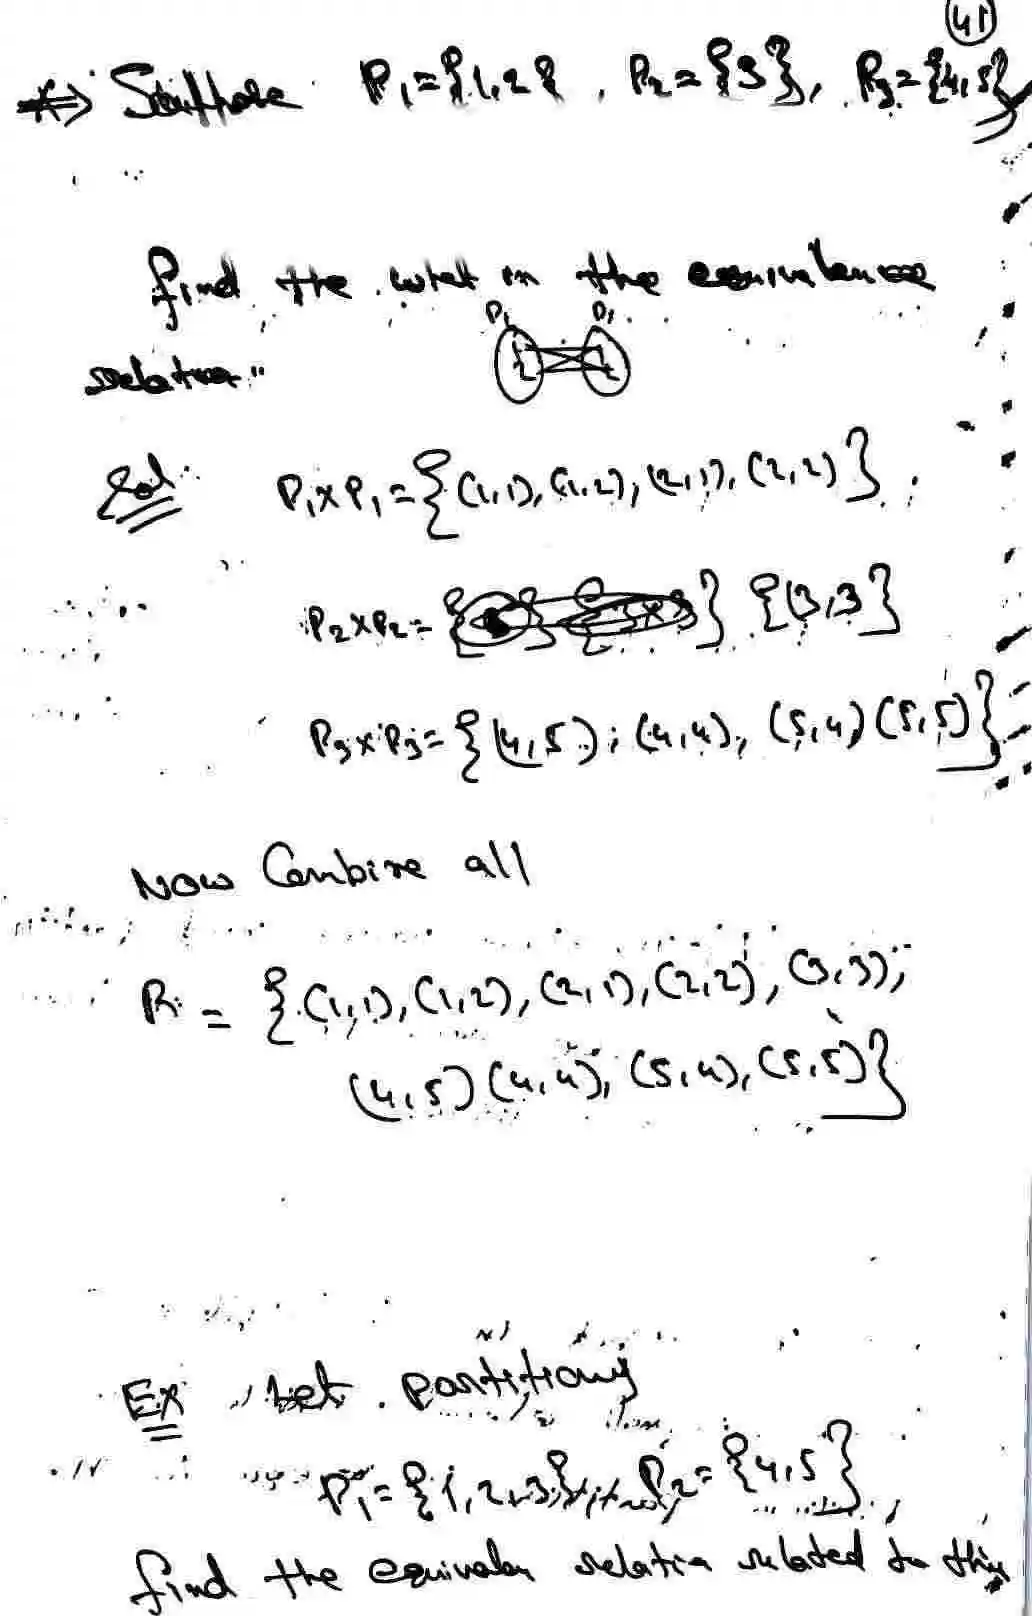 41
Suppose P₁={1,2}, P₂={3}, P₃={4,5}
find the what is the equivalence
P₁ P₁
relation"
1 1
2 2
Sol P₁×P₁={(1,1),(1,2),(2,1),(2,2)}
P₂×P₂= {(3,3}
P₃×P₃={(4,5),(4,4),(5,4)(5,5)}
Now Combine all
R = {(1,1),(1,2),(2,1),(2,2),(3,3),
(4,5)(4,4),(5,4),(5,5)}
Ex let partitions
P₁={1,2,3}, P₂={4,5}
find the equivalen relation related to this